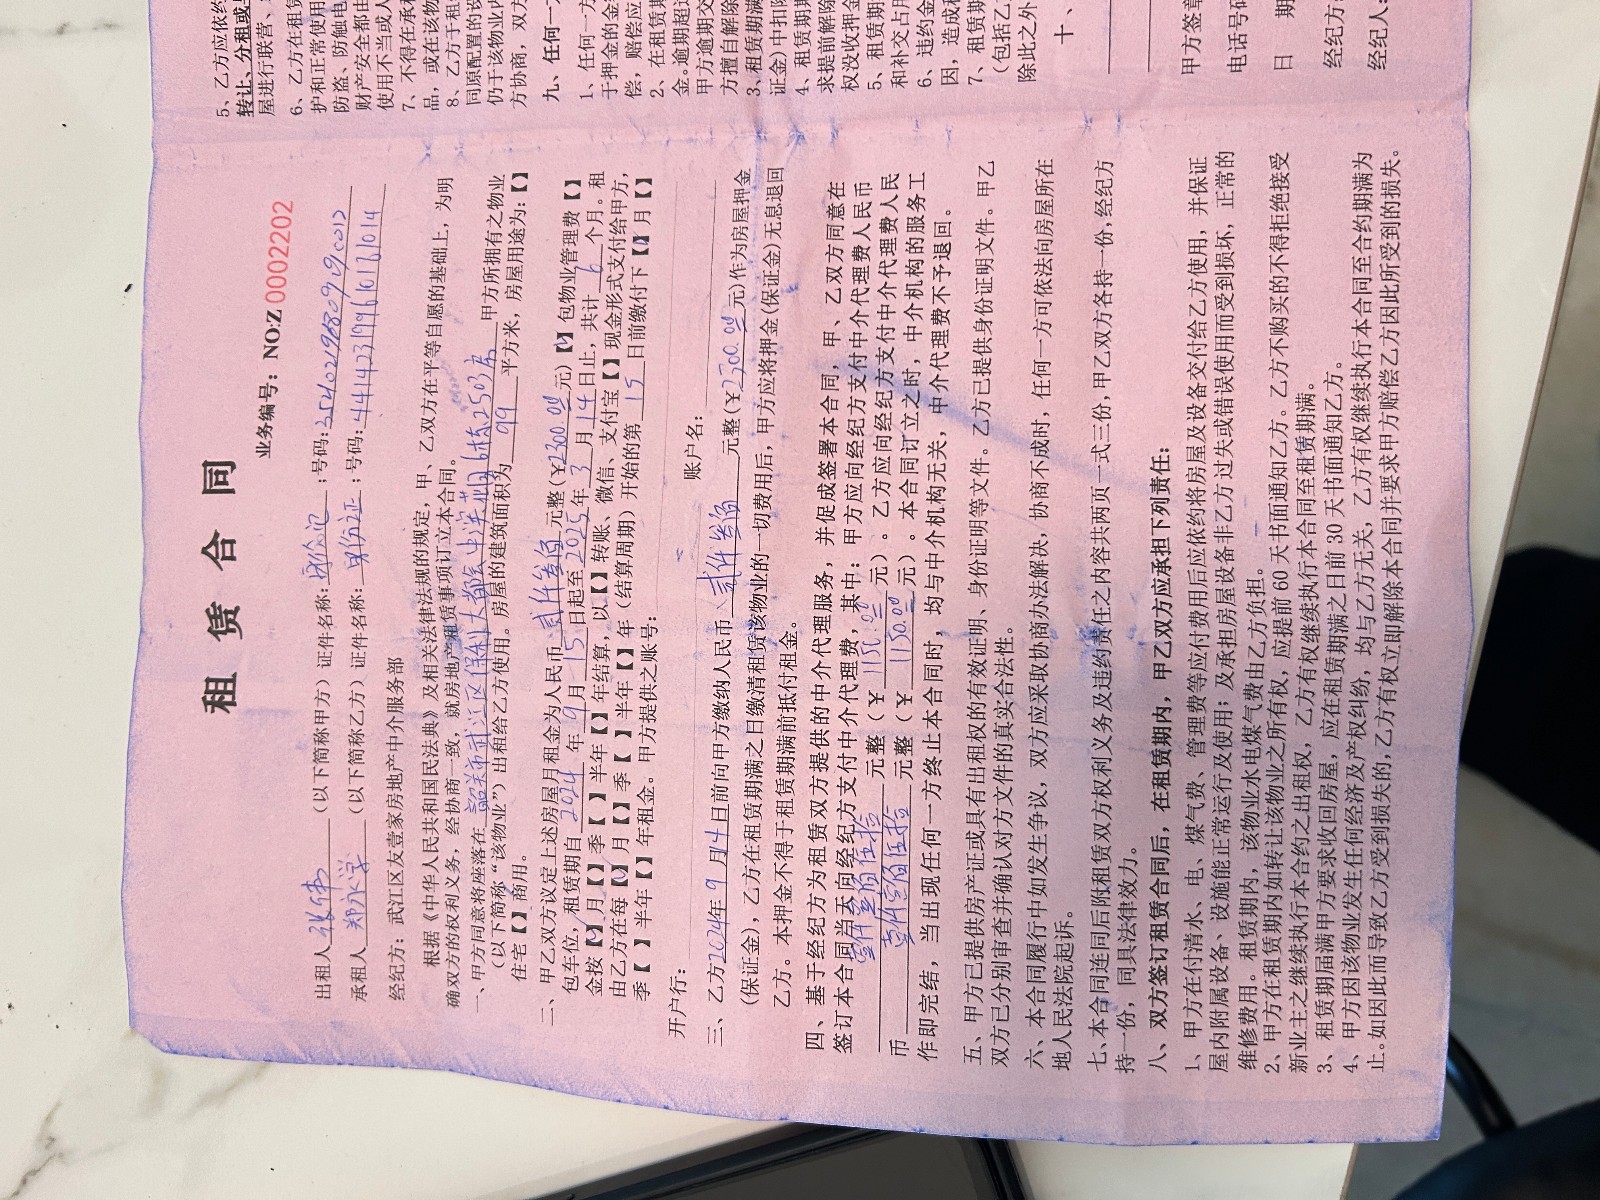 租 赁 合 同
业务编号：NO:Z 0002202
出租人 张伟 （以下简称甲方）证件名称： ；号码：
承租人 郑永学 （以下简称乙方）证件名称：身份证；号码：
经纪方：武江区友壹家房地产中介服务部
根据《中华人民共和国民法典》及相关法律法规的规定，甲、乙双方在平等自愿的基础上，为明
确双方的权利义务，经协商一致，就房地产租赁事项订立本合同。
一、甲方同意将座落在 韶关市武江区保利大都会 2503房 甲方所拥有之物业
（以下简称“该物业”）出租给乙方使用。房屋的建筑面积为 99 平方米，房屋用途为：【】
住宅【】商用。
二、甲乙双方议定上述房屋月租金为人民币 贰仟叁佰 元整（￥2300.00元）【√】包物业管理费【】
包车车位，租赁期自 2024 年 9 月 15 日起至 2025 年 3 月 14 日止，共计 6 个月。租
金按【√】月【】季【】半年【】年结算，以【】转账、微信、支付宝【】现金形式支付给甲方，
由乙方在每【√】月【】季【】半年【】年（结算周期）开始的第 15 日前缴付下【√】月【】
季【】半年【】年租金。甲方提供之账号：
开户行： 账户名：
三、乙方2024年9月14日前向甲方缴纳人民币 贰仟叁佰 元整（￥2300.00元）作为房屋押金
（保证金），乙方在租赁期满之日缴清租赁该物业的一切费用后，甲方应将押金（保证金）无息退回
乙方。本押金不得于租赁期满前抵付租金。
四、基于经纪方为租赁双方提供的中介代理服务，并促成签署本合同，甲、乙双方同意在
签订本合同当天向经纪方支付中介代理费，其中：甲方应向经纪方支付中介代理费人民币
壹仟壹佰伍拾 元整（￥ 1150.00 元）。乙方应向经纪方支付中介代理费人民
币 壹仟壹佰伍拾 元整（￥ 1150.00 元）。本合同订立之时，中介机构的服务工
作即完结，当出现任何一方终止本合同时，均与中介机构无关，中介代理费不予退回。
五、甲方已提供房产证或具有出租权的有效证明、身份证明等文件。乙方已提供身份证明文件。甲乙
双方已分别审查并确认对方文件的真实合法性。
六、本合同履行中如发生争议，双方应采取协商办法解决，协商不成时，任何一方可依法向房屋所在
地人民法院起诉。
七、本合同连同后附租赁双方权利义务及违约责任之内容共两页一式三份，甲乙双方各持一份，经纪方
持一份，同具法律效力。
八、双方签订租赁合同后，在租赁期内，甲乙双方应承担下列责任：
1、甲方在付清水、电、煤气费、管理费等应付费用后应依约将房屋及设备交付给乙方使用，并保证
屋内附属设备、设施能正常运行及使用；及承担房屋设备非乙方过失或错误使用而受到损坏，正常的
维修费用。租赁期内，该物业水电煤气费由乙方负担。
2、甲方在租赁期内如转让该物业之所有权，应提前 60 天书面通知乙方。乙方不购买的不得拒绝接受
新业主之继续执行本合约之出租权，乙方有权继续执行本合同至租赁期满。
3、租赁期届满甲方要求收回房屋，应在租赁期满之日前 30 天书面通知乙方。
4、甲方因该物业发生任何经济及产权纠纷，均与乙方无关，乙方有权继续执行本合同至合约期满为
止。如因此而导致乙方受到损失的，乙方有权立即解除本合同并要求甲方赔偿乙方因此所受到的损失。
5、乙方应依约
转让、分租或
屋进行联营、
6、乙方在租赁
护和正常使用
防盗、防触电
财产安全都由
使用不当或人
7、不得在承
品，或在该物
8、乙方于租
同原配置的设
仍于该物业内
方协商，双方
九、任何一
1、任何一方
于押金的金
偿，赔偿应
2、在租赁期
金。逾期超过
甲方逾期交
方擅自解除
3、租赁期满
证金）中扣除
4、租赁期
求提前解除
权没收押金
5、租赁期
和补交占用
6、违约金
因，造成租
7、租赁期
（包括乙
除此之外
十、
甲方签章
电话号码
日 期
经纪方：
经纪人：